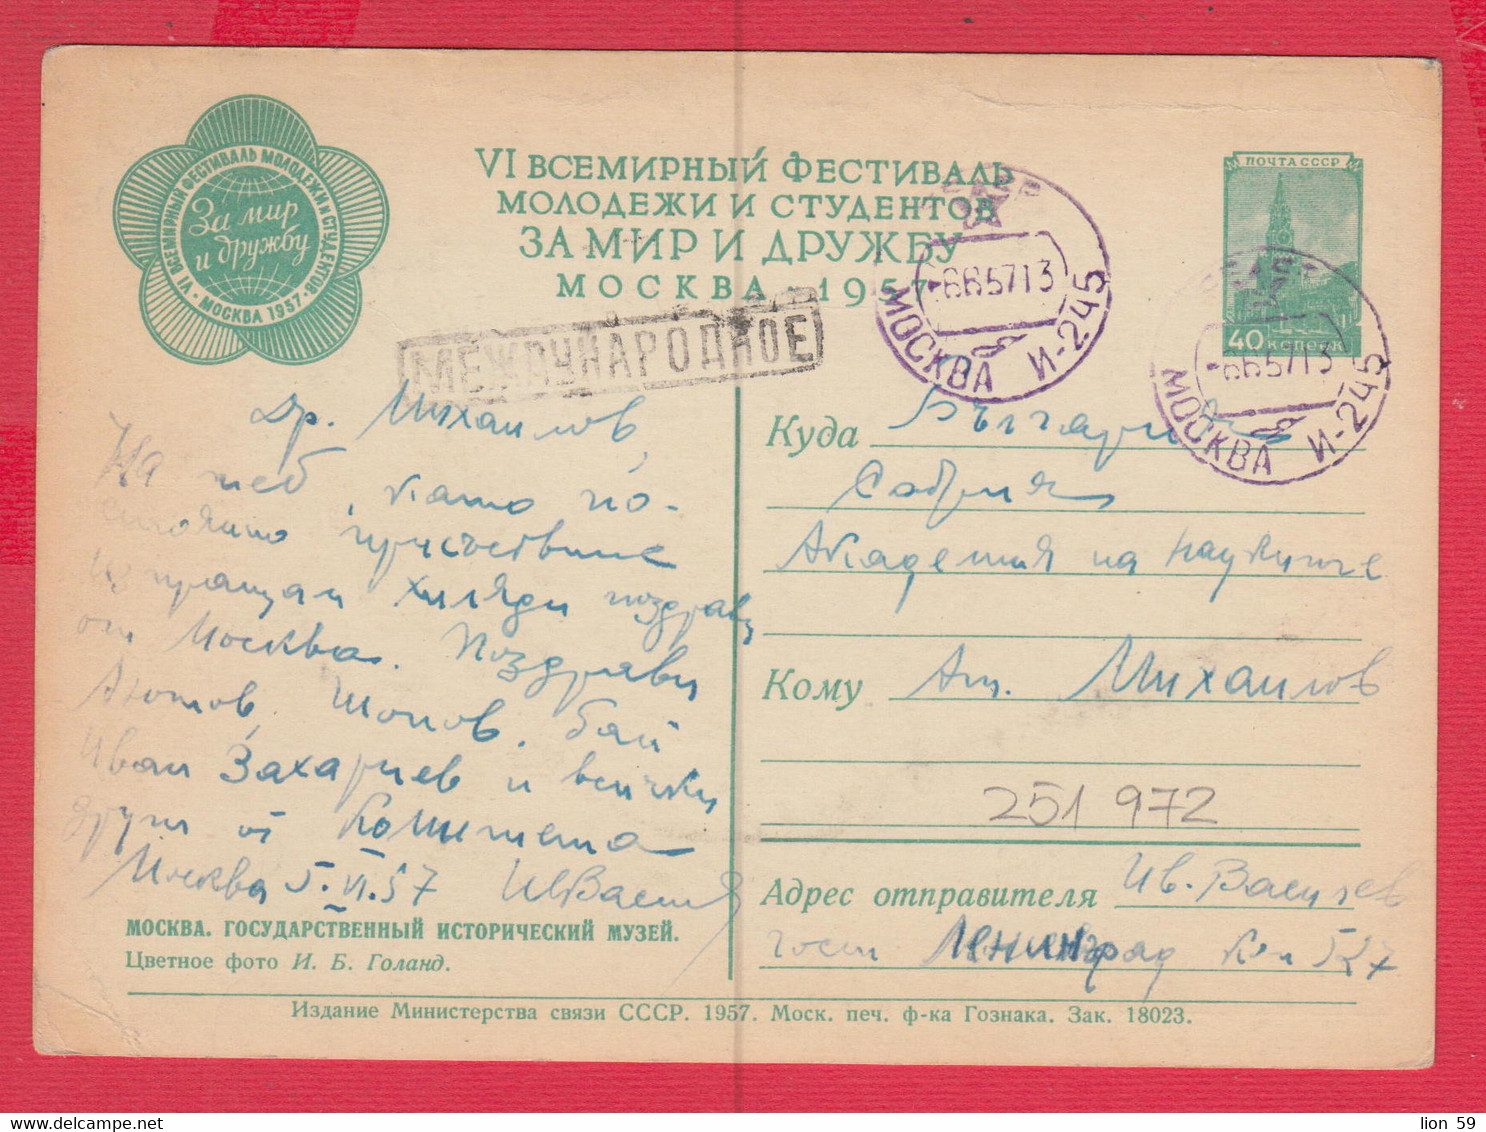 VI ВСЕМИРНЫЙ ФЕСТИВАЛЬ МОЛОДЕЖИ И СТУДЕНТОВ
МОСКВА 1957
За мир
и дружбу
VI ВСЕМИРНЫЙ ФЕСТИВАЛЬ
МОЛОДЕЖИ И СТУДЕНТОВ
ЗА МИР И ДРУЖБУ
МОСКВА 1957
ПОЧТА СССР
40 КОПЕЕК
МОСКВА И-245
665713
МОСКВА И-245
665713
МЕЖДУНАРОДНОЕ
Др. Михайлов,
На теб, като по-
стоянно присъствие
изпращам хиляди поздрави
от Москва. Поздрави
Шопов, бай
Иван Захариев и всички
други от Комитета
Москва 5.VI.57 Ив Васил
Куда България
София
Академия на науките
Кому Ат. Михайлов
251 972
Адрес отправителя Ив. Василев
гост Ленинград
МОСКВА. ГОСУДАРСТВЕННЫЙ ИСТОРИЧЕСКИЙ МУЗЕЙ.
Цветное фото И. Б. Голанд.
Издание Министерства связи СССР. 1957. Моск. печ. ф-ка Гознака. Зак. 18023.
lion 59